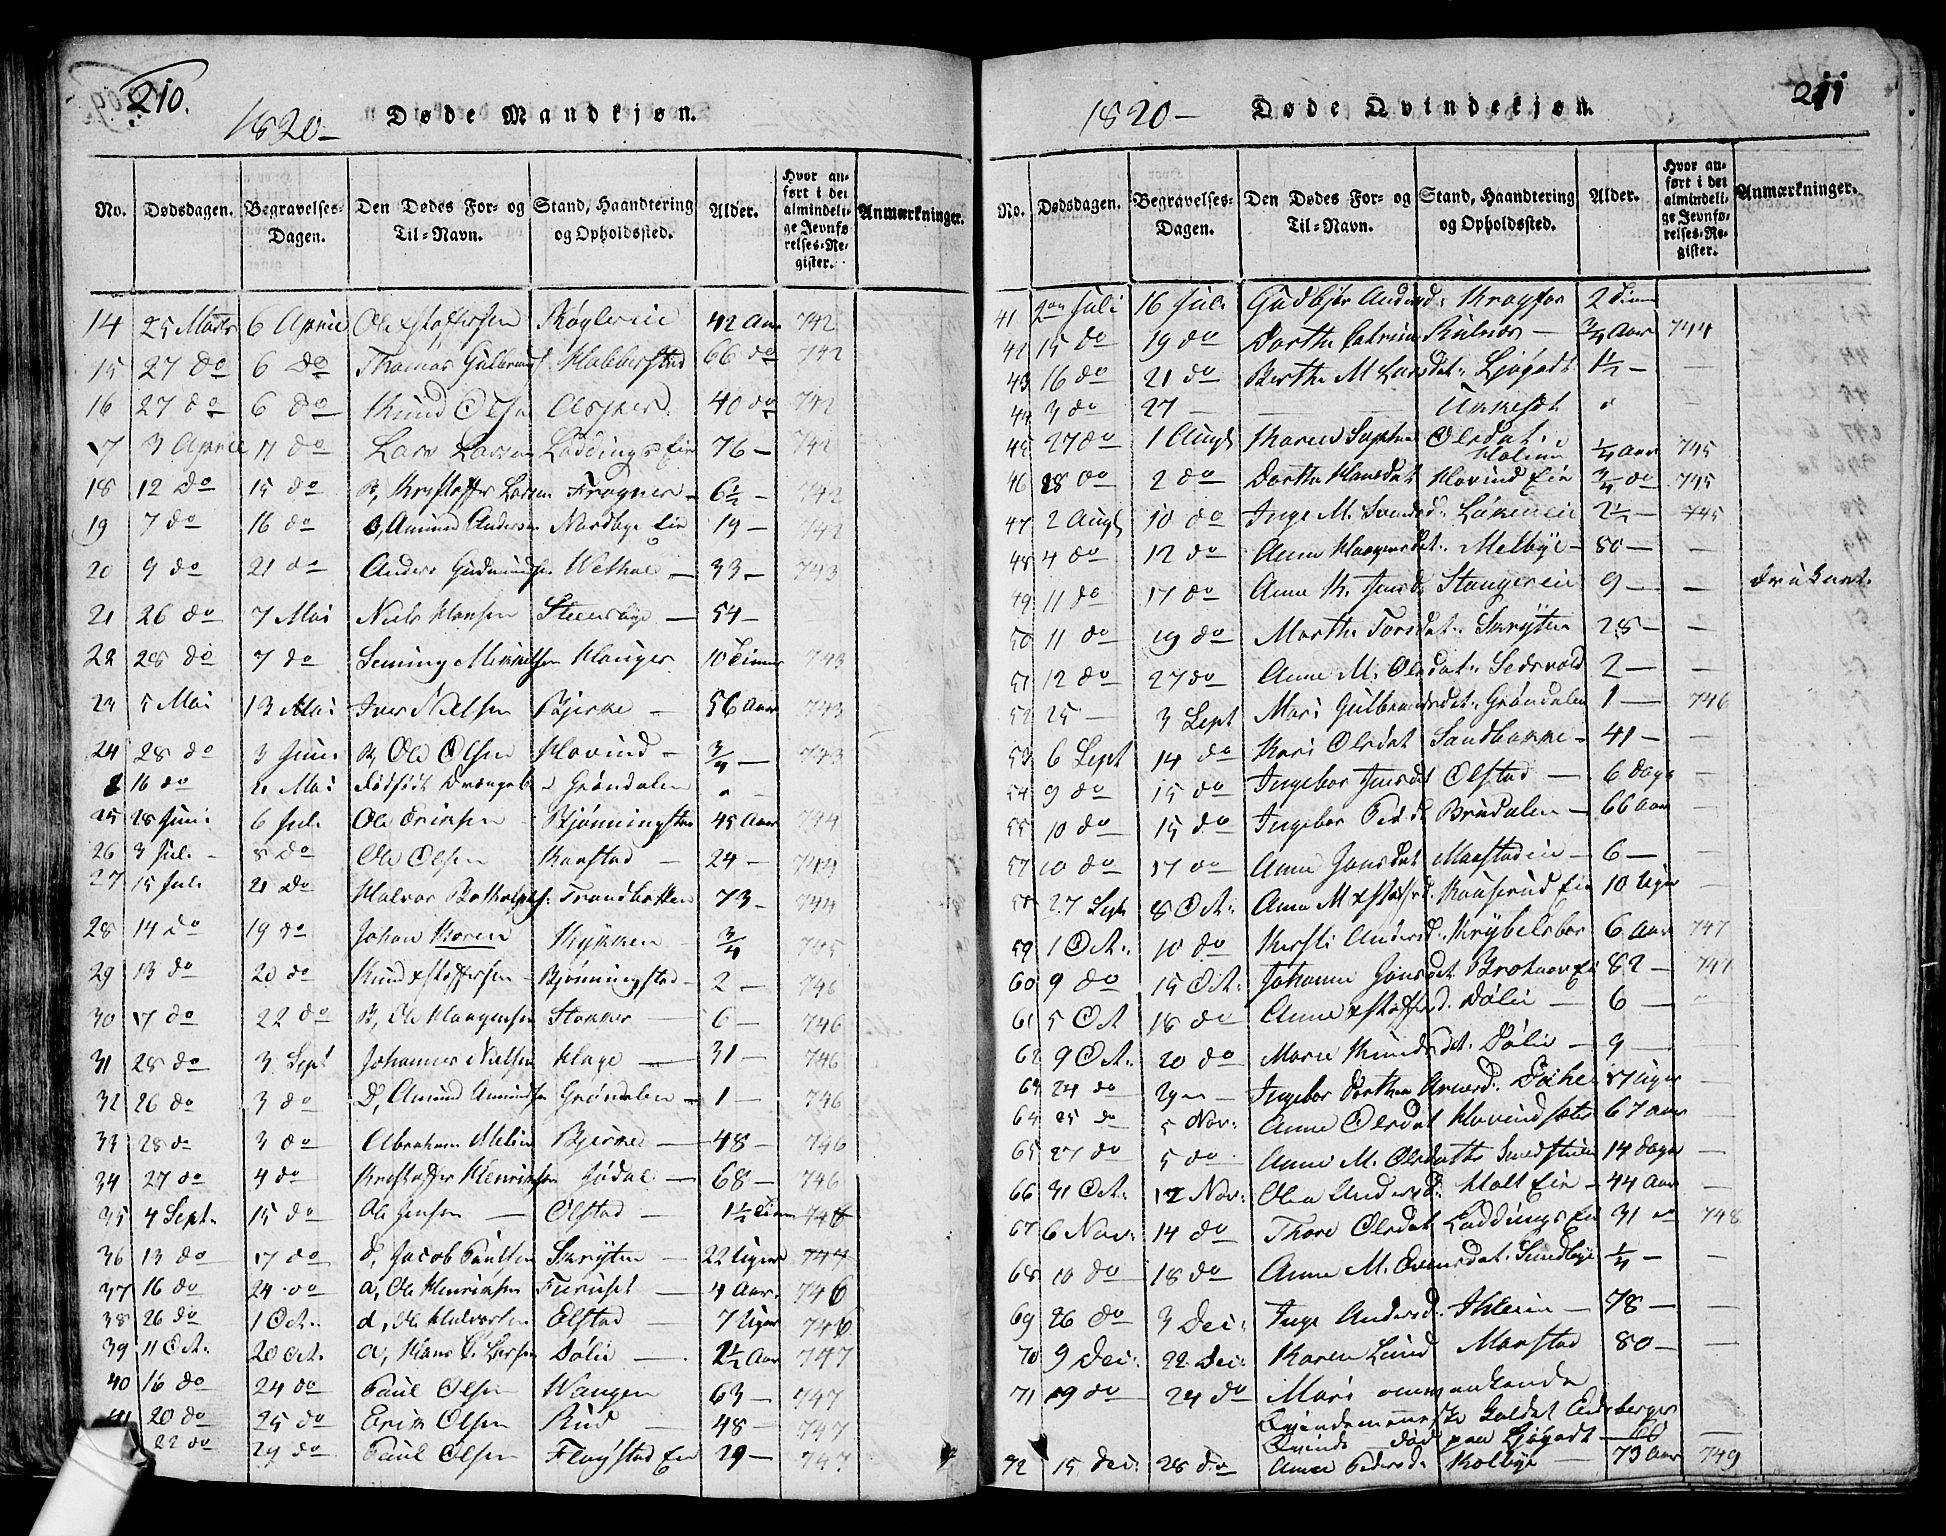 210.
1820-
Døde Mandkjøn.
No. Dødsdagen. Begravelses-Dagen. Den Dødes For- og Til-Navn. Stand, Haandtering og Opholdssted. Alder. Hvor anført i det almindelige Jevnførelses-Register. Anmærkninger.
14 25 Marts 6 Aprie Ole xstoffersen Røglerie 42 Aar 742
15 27 do 6 do Thomas Gulbrands Habberstad 66 do 742
16 27 do 6 do Knud Olsn Olsper 40 do 742
17 3 Aprie 11 do Lars Larsen Løddings Eie 76 — 742
18 12 do 15 do B, Krystoffer Larsen Frogner 6½ — 742
19 7 do 16 do B, Amund Andersen Nordbye Eie 19 — 742
20 9 do 21 do Anders Gudmunds Wethal — 33 — 743
21 26 do 7 Mai Niels Hansen Steensbye — 54 —
22 28 do 7 do Semming Mikkelsen Hauger 10 Timer 743
23 5 Mai 13 Mai Iver Nielsen Bjerke — 56 Aar 743
24 28 do 3 Juni B, Ole Olsen Hovind — ¾ — 743
16 do Mai Dødfødt Drængeb Grøndalen
25 28 Juni 6 Juli Ole Eriksen Bjønningstad 45 Aar 744
26 3 Juli 8 do Ole Olsen Kaxstad — 24 — 744
27 15 Juli 21 do Halvor Trandbakken 73 — 744
28 14 do 19 do Johan Koren Kykken — ¾ 745
29 13 do 20 do Knud xstoffersen Bjønningstad — 2 — 746
30 17 do 22 do B, Ole Haagensen Stokker — 6 — 746
31 28 do 3 Sept Johannes Nielsen Hage — 31 — 746
32 26 do 3 do D, Amund Amunds Grøndalen — 1 — 746
33 28 do 3 do Abraham Melin Bjerke — 48 — 746
34 27 do 4 do Krestoffer Henriksen Jødal — 68 — 746
35 4 Sept. 15 do Ole Jensen — Olstad — 1½ Time 746
36 13 do 17 do d, Jacob Paulsen Skrytten — 22 Uger 744
37 16 do 24 do a, Ole Henriksen Furuset — 4 Aar. 746
38 26 do 1 Oct. d, Ole Halvorsen Olstad — 7 Uger 746
39 11 Oct. 20 Oct. a, Hans Larsen Dølie — 2½ Aar 747
40 16 do 24 do Paul Olsen Wangen 63 — 747
41 20 do 25 do Erik Olsen Rud — 48 — 747
22 do 29 do Paul Olsen Fløystad Eie 29 — 747
211
1820 —
Døde Qvindekjøn.
No. Dødsdagen. Begravelses-Dagen. Den Dødes For- og Til-Navn. Stand, Haandtering og Opholdssted. Alder. Hvor anført i det almindelige Jevnførelses-Register. Anmærkninger.
41 2den Juli 16 Juli Gudbjør Andersd: Kragfos 2 Timer
42 15 do 19 do Dorthe Catrine Rulnæs — ¾ Aar 744
43 16 do 21 do Berthe M. Larsdat: Ljøgodt 1½ — —
44 3 do 27 — — Ukkestad
45 27 do 1 Augt Karen Sophie Olsdat: Holum ¼ Aar 745
46 28 do 2 do Dorthe Hansdat Hovind Eie ¾ do 745
47 2 Augt 10 do Inge M. Svendsd: Løkeneie 2½ — 745
48 4 do 12 do Anne Haagensdat: Melbye — 80 — —
49 11 do 17 do Anne K. Jensd: Stangereie 9 — — druknet.
50 11 do 19 do Marthe Torsdat: Skrytten 28 — —
51 12 do 27 do Anne M. Olsdat: Sedsvold 2 — —
52 25 — 3 Sept Mari Gulbrandsdat: Grøndalen 1 — 746
53 6 Sept 14 do Kari Olsdat Sandbakke — 41 — —
54 9 do 15 do Ingebor Jensdat Olstad — 6 dage —
55 10 do 15 do Ingebor Ped:d: Brudalen — 66 Aar —
57 10 do 17 do Anne Jensdat Marstadeie — 6 — —
58 27 Sept 8 Oct: Anne M. xstoffersd: Eie 10 Uger —
59 1 Oct. 10 do Kirsti Andersd: Krybelsbor 6 Aar 747
60 9 do 15 Oct. Johanne Jonsdat Eie 82 — 747
61 5 Oct 18 do Anne xstoffersd: Dølie — 6 —
62 9 Oct. 20 do Marie Knudsdat: Dølie — 9 — —
63 24 do 29 — Ingebor Dorthea 17 Uger —
64 25 do 5 Nov: Anne Olsdat Hovindsæter 67 Aar —
65 27 do 5 do Anne M. Olsdatter Smedstuen 14 dage —
66 31 Oct. 12 Nov: Olea Andersd: Holt Eie — 44 Aar —
67 6 Nov: 14 do Thore Olsdat Løddings Eie 31 — 748
68 10 do 18 do Anne M. Evensdat: Sundbye ¼ — —
69 26 do 3 Dec: Inge Andersd: Ihleeie — 78 — —
70 9 Dec: 22 Dec: Karen Lund Marstad 80 — —
71 19 do 24 do Mari omvankende
Qvindemenneske Kaldet Edsberger
Qvinde død paa Ljøgodt — 66 —
72 15 Dec: 28 do Anne Pedersd: Kolbye — 73 Aar 749